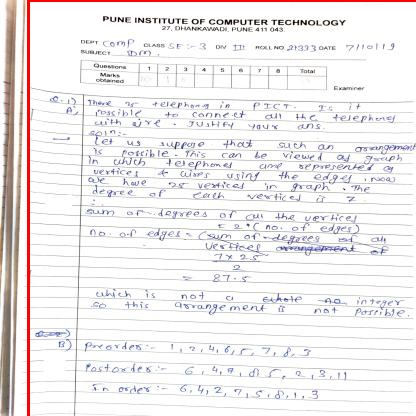 PUNE INSTITUTE OF COMPUTER TECHNOLOGY
27, DHANKAWADI, PUNE 411 043.
DEPT. Comp CLASS SE:-3 DIV III ROLL NO. 21333 DATE 7/10/19
SUBJECT DM.
Questions 1 2 3 4 5 6 7 8 Total
Marks obtained
Examiner
Q-1) There 25 telephong in PICT. Is it
A) possible to connect all the telephones
with wire. Justify your ans.
soln:-
→ Let us suppose that such an arrangement
is possible. This can be viewed as graph
in which telephones are represented as
vertices & wires using the edges, now
we have 25 vertices in graph. The
degree of each vertices is 7.
∴
sum of degrees of all the vertices
= 2*(no. of edges)
no. of edges = (sum of degrees of all
vertices arrangement of
7 x 25
2
= 87.5
which is not a whole no integer
so this arrangement is not possible.
B) Preorder:- 1, 2, 4, 6, 5, 7, 8, 3
Postorder:- 6, 4, 7, 8, 5, 2, 3, 11
In order:- 6, 4, 2, 7, 5, 8, 1, 3